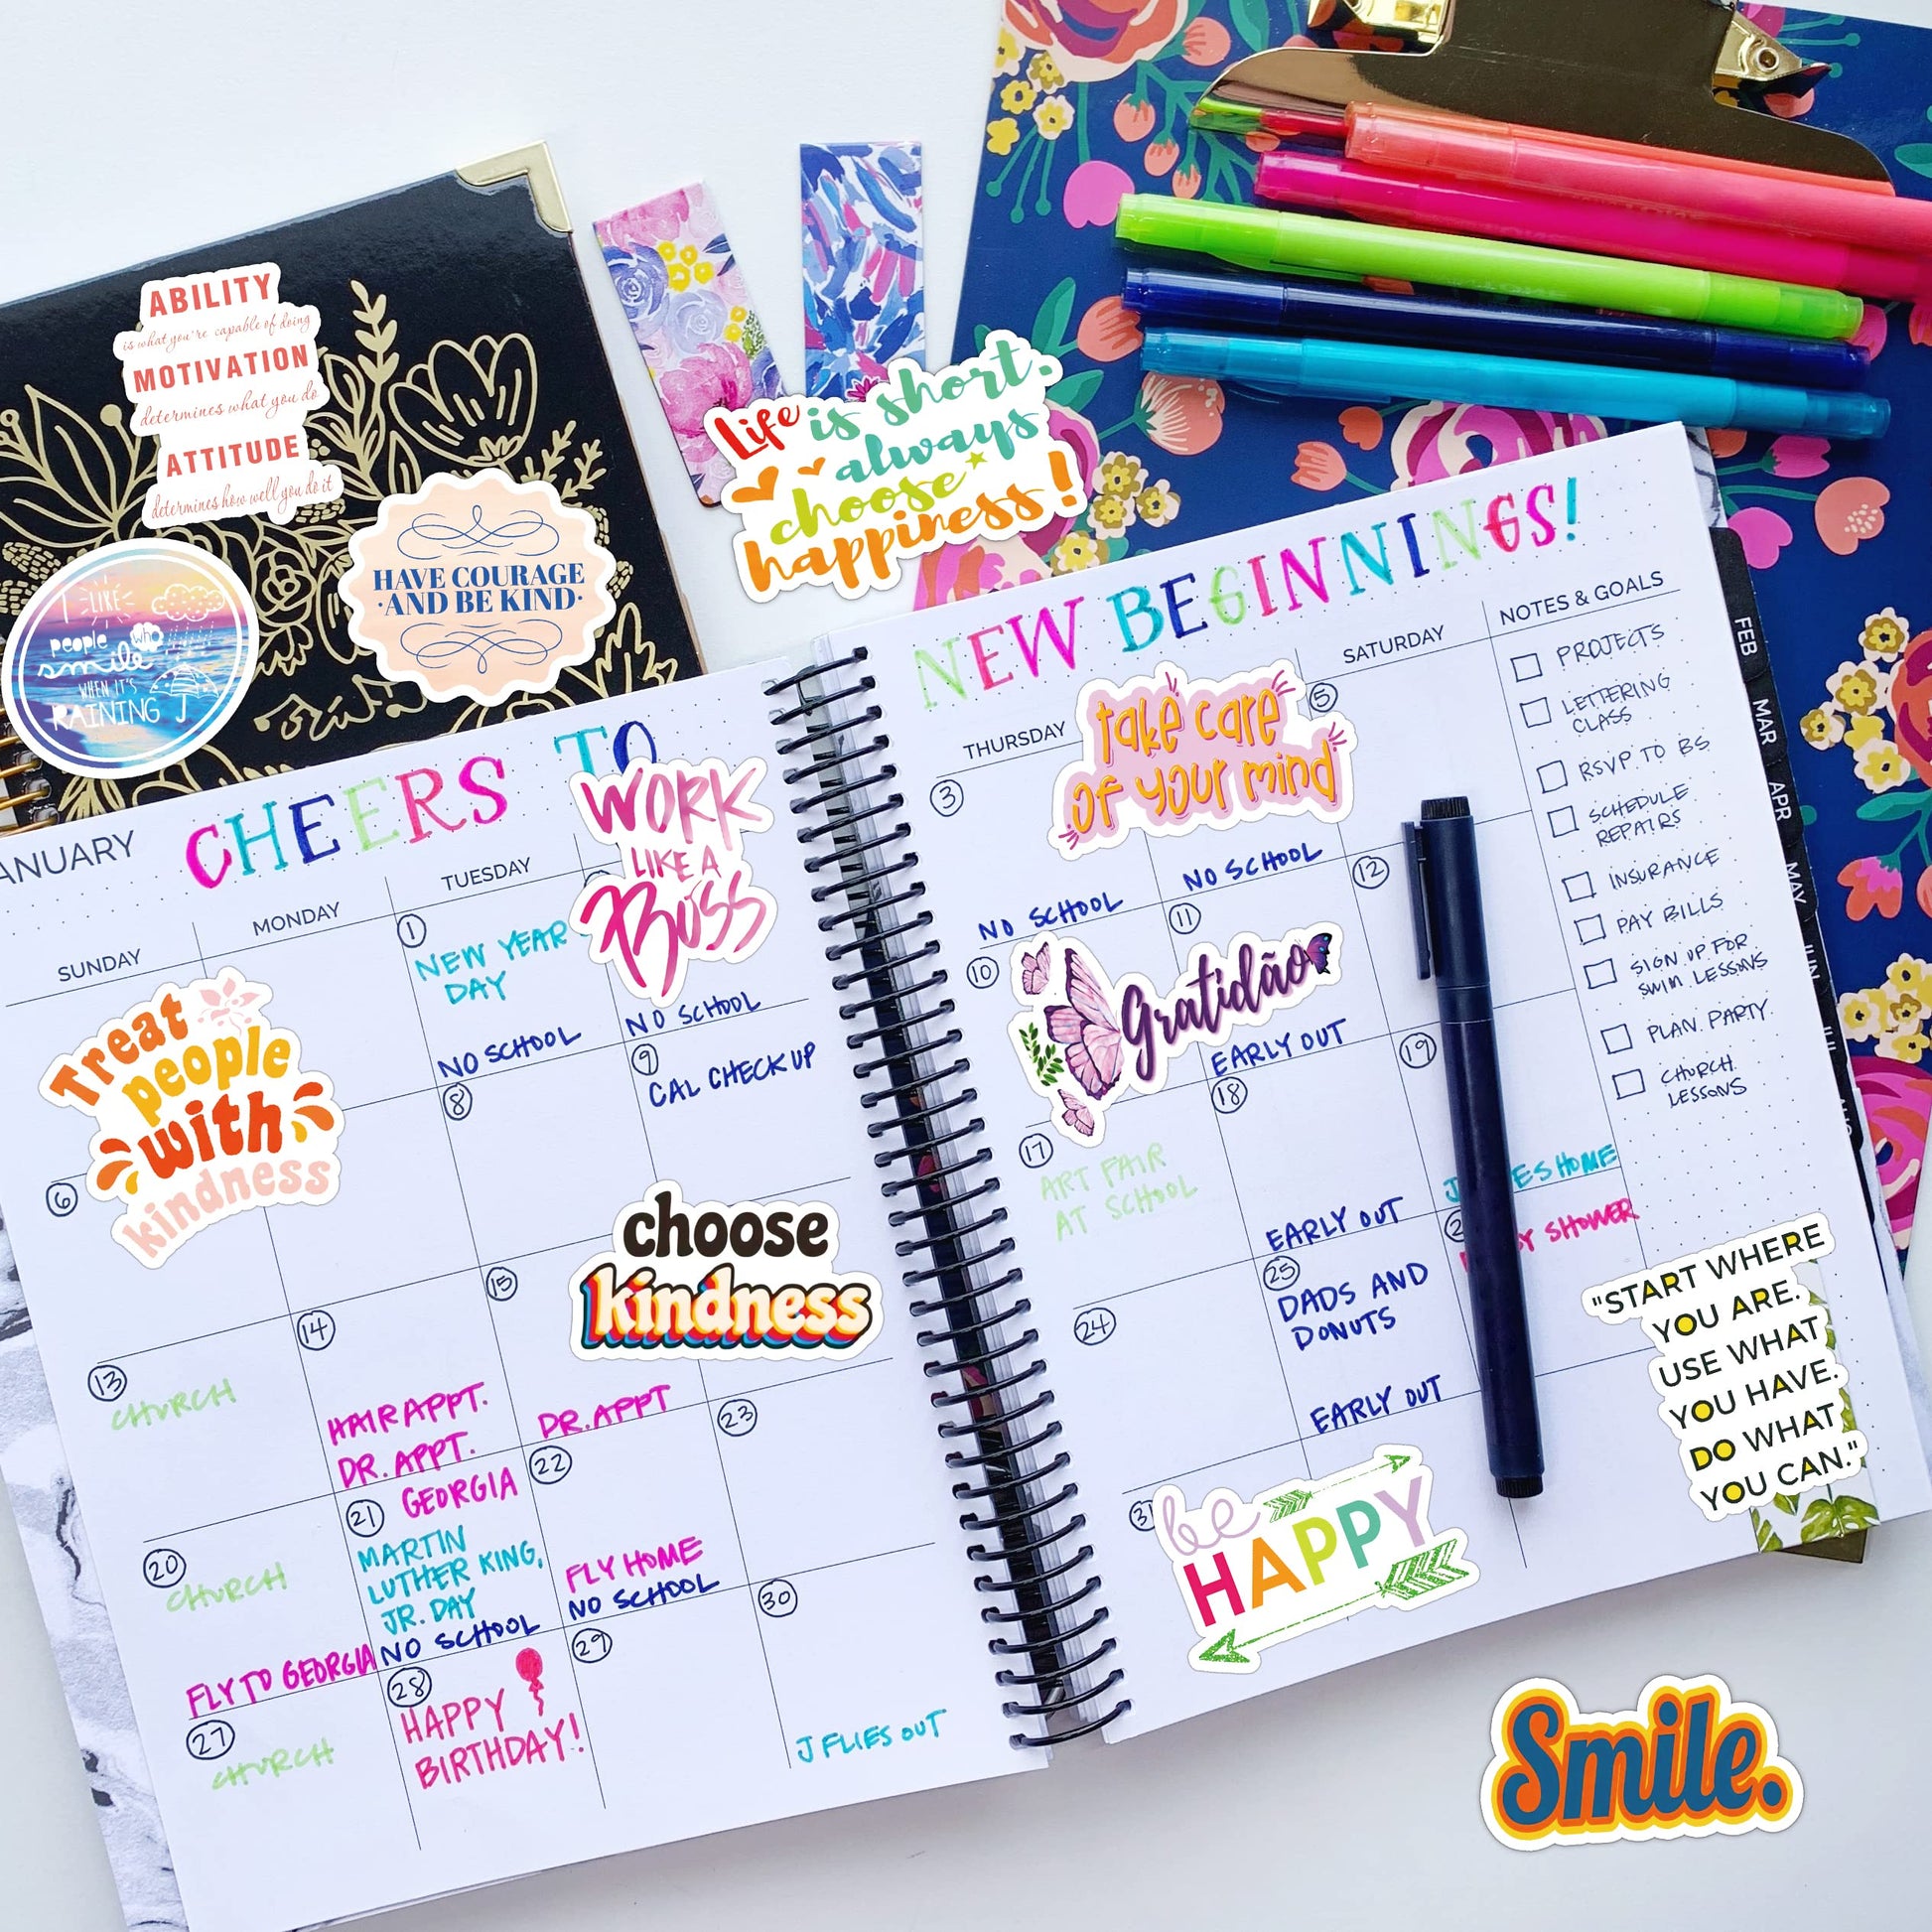 ABILITY
is what you're capable of doing
MOTIVATION
determines what you do
ATTITUDE
determines how well you do it
HAVE COURAGE
·AND BE KIND·
I LIKE
people who
smile
WHEN IT'S
RAINING
Life is short.
always
choose
happiness!
ANUARY
CHEERS TO
WORK
LIKE A
BOSS
SUNDAY
MONDAY
TUESDAY
Treat
people
with
kindness
1
NEW YEAR
DAY
NO SCHOOL
NO SCHOOL
6
8
9
CAL CHECK UP
choose
kindness
13
CHURCH
14
HAIR APPT.
DR. APPT.
15
DR. APPT
20
CHURCH
FLY TO GEORGIA
21
GEORGIA
MARTIN
LUTHER KING,
JR. DAY
NO SCHOOL
22
FLY HOME
NO SCHOOL
23
27
CHURCH
28
HAPPY
BIRTHDAY!
29
30
J FLIES OUT
NEW BEGINNINGS!
THURSDAY
SATURDAY
NOTES & GOALS
take care
of your mind
3
NO SCHOOL
NO SCHOOL
5
10
Gratidão
11
EARLY OUT
12
17
ART FAIR
AT SCHOOL
18
EARLY OUT
19
HOME
24
25
DADS AND
DONUTS
EARLY OUT
SHOWER
31
be
HAPPY
PROJECTS
LETTERING
CLASS
RSVP TO BS
SCHEDULE
REPAIRS
INSURANCE
PAY BILLS
SIGN UP FOR
SWIM LESSONS
PLAN PARTY
CHURCH
LESSONS
FEB
MAR
APR
MAY
JUN
JUL
"START WHERE
YOU ARE.
USE WHAT
YOU HAVE.
DO WHAT
YOU CAN."
Smile.